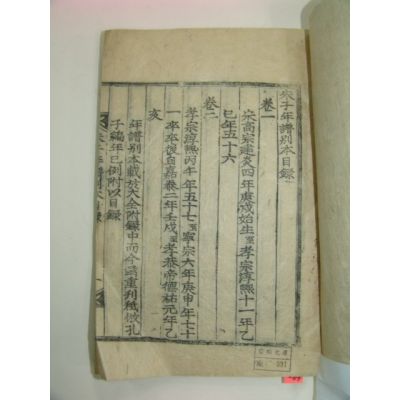 朱子年譜別本目錄
卷一
宋高宗建炎四年庚戌始生至孝宗淳熙十一年乙
巳年五十六
卷二
孝宗淳熙丙午年五十七至寧宗六年庚申年七十
一卒卒後自嘉泰二年壬戌至孝恭帝德祐元年乙
亥
年譜別本載於大全附錄中而今為重刊稍倣孔
子編年已例附以目錄